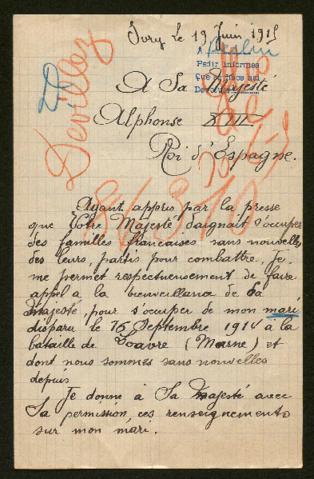 Ivry le 19 Juin 1915
A Berlin
Pedir informes
A Sa Majesté
Alphonse XIII
Roi d'Espagne.
Devillez
Ayant appris par la presse
que Votre Majesté daignait s'occuper
des familles françaises sans nouvelles
des leurs, partis pour combattre, Je
me permet respectueusement de faire
appel a la bienveillance de Sa
Majesté, pour s'occuper de mon mari
disparu le 15 Septembre 1914 à la
bataille de (Marne) et
dont nous sommes sans nouvelles
depuis
Je donne à Sa Majesté avec
Sa permission, ces renseignements
sur mon mari.